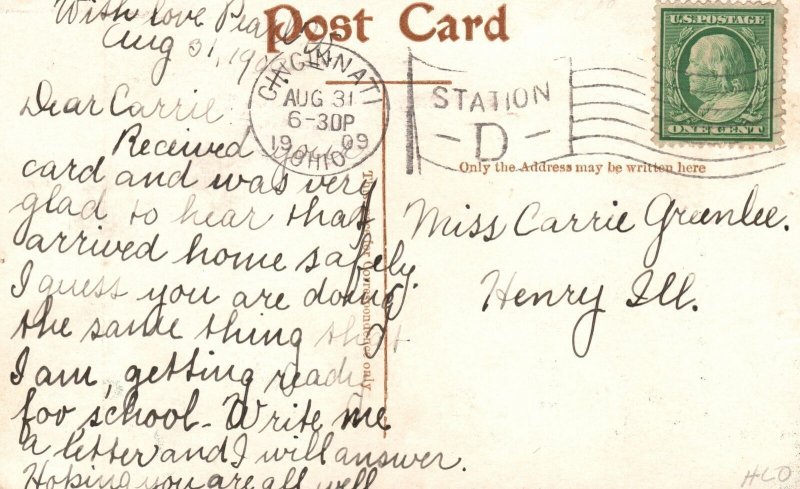 With love Pearl
Aug 31, 190
Post Card
CINCINNATI
AUG 31
6-30P
1909
OHIO
STATION
-D-
U.S. POSTAGE
ONE CENT
Only the Address may be written here
Dear Carrie
Received your
card and was very
glad to hear that
arrived home safely.
I guess you are doing
the same thing that
I am, getting ready
for school. Write me
a letter and I will answer.
Hoping you are all well
for Correspondence only
Miss Carrie Greenlee.
Henry Ill.
HLO